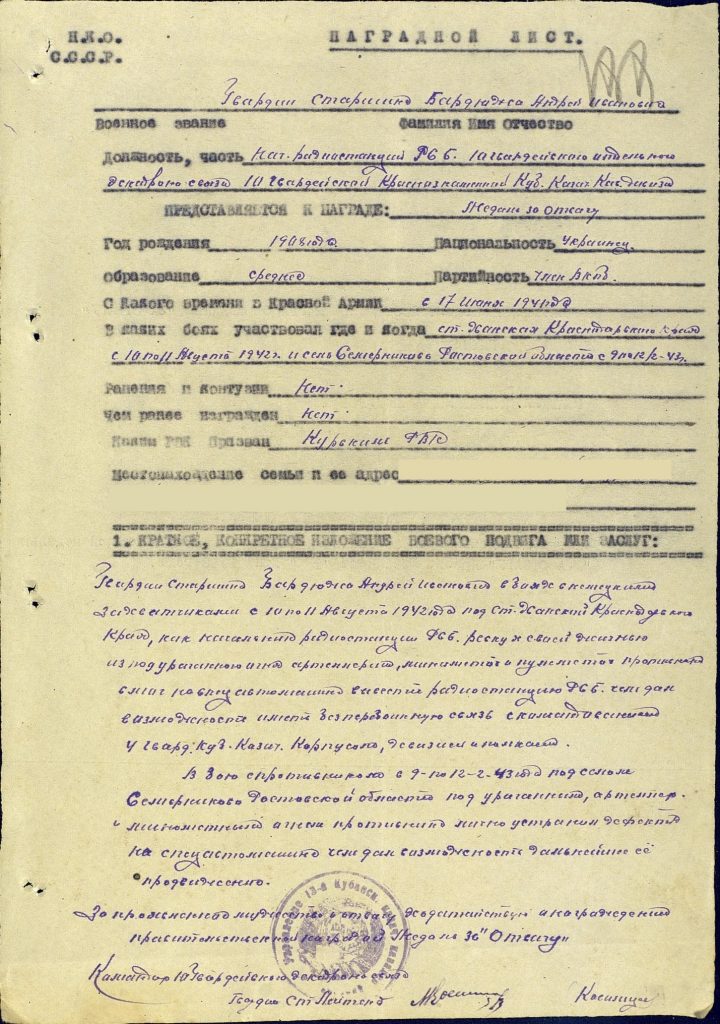 Н.К.О.
С.С.С.Р.
НАГРАДНОЙ ЛИСТ.
Гвардии Старшина Бардюджа Андрей Иванович
Военное звание Фамилия Имя Отчество
Должность, часть Нач. радиостанции РСБ. 10 гвардейского отдельного
10 Гвардейской Краснознаменной Куб. Казач. Кав. дивизии
ПРЕДСТАВЛЯЕТСЯ К НАГРАДЕ: Медаль за Отвагу
Год рождения 1908 года Национальность Украинец
образование среднее Партийность член ВКПб.
С Какого времени в Красной Армии с 17 Июня 1941 года
В каких боях участвовал где и когда ст. Ханская Краснодарского края
с 10 по 11 Августа 1942 г. и село Семерниково Ростовской области с 9 по 12/2-43 г.
Ранения и контузии Нет.
Чем ранее награжден Нет.
Каким РВК Призван РВК
Местонахождение семьи и ее адрес
1. КРАТКОЕ, КОНКРЕТНОЕ ИЗЛОЖЕНИЕ БОЕВОГО ПОДВИГА ИЛИ ЗАСЛУГ:
Гвардии Старшина Бардюджа Андрей Иванович в боях с немецкими
захватчиками с 10 по 11 Августа 1942 года под ст. Ханской Краснодарского
Края, как начальник радиостанции РСБ. рескуя своей жизнью
из под ураганного огня артеллерии, минометов и пулеметов противника
смог на спец автомашине вывести радиостанцию РСБ. чем дал
возможность иметь безперебойную связь с командованием
4 гвард. Куб. Казач. Корпусом, дивизией и полками.
В бою с противником с 9-по 12-2-43 года под селом
Семерниково Ростовской области под ураганным, артеллер.
минометным огнем противника лично устранил дефекты
на спецавтомашине чем дал возможность дальнейше её
продвижению.
За проявленное мужество и отвагу ходатайствую о награждении
правительственной наградой Медаль За "Отвагу"
Командир 10 Гвардейского связи
Гвардии Ст. Лейтенант